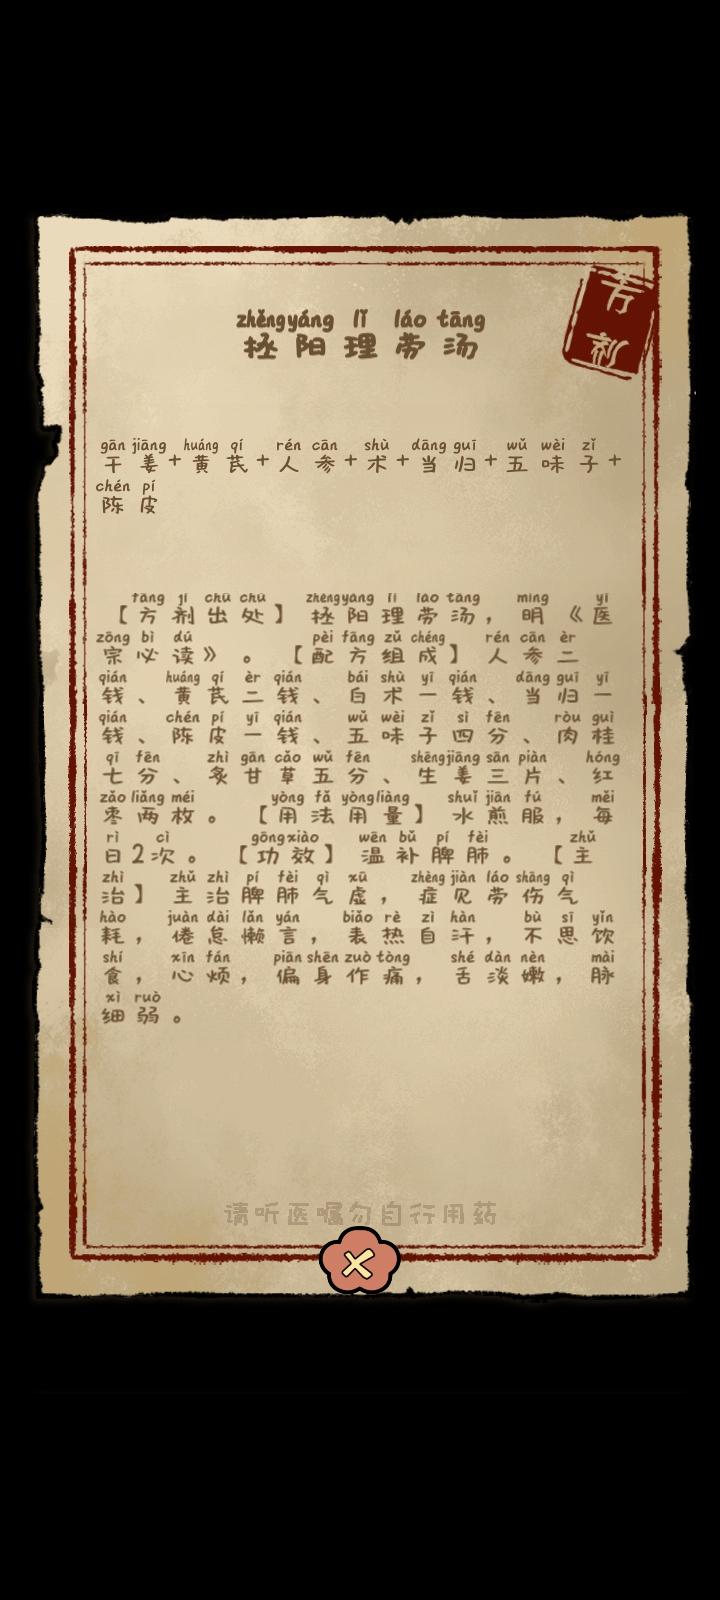 zhěng yáng lǐ láo tāng
拯阳理劳汤
方剂
gān jiāng huáng qí rén cān shù dāng guī wǔ wèi zǐ
干姜+黄芪+人参+术+当归+五味子+
chén pí
陈皮
fāng jì chū chù zhěng yáng lǐ láo tāng míng yī
【方剂出处】拯阳理劳汤，明《医
zōng bì dú pèi fāng zǔ chéng rén cān èr
宗必读》。【配方组成】人参二
qián huáng qí èr qián bái shù yī qián dāng guī yī
钱、黄芪二钱、白术一钱、当归一
qián chén pí yī qián wǔ wèi zǐ sì fēn ròu guì
钱、陈皮一钱、五味子四分、肉桂
qī fēn zhì gān cǎo wǔ fēn shēng jiāng sān piàn hóng
七分、炙甘草五分、生姜三片、红
zǎo liǎng méi yòng fǎ yòng liàng shuǐ jiān fú měi
枣两枚。【用法用量】水煎服，每
rì cì gōng xiào wēn bǔ pí fèi zhǔ
日2次。【功效】温补脾肺。【主
zhì zhǔ zhì pí fèi qì xū zhèng jiàn láo shāng qì
治】主治脾肺气虚，症见劳伤气
hào juàn dài lǎn yán biǎo rè zì hàn bù sī yǐn
耗，倦怠懒言，表热自汗，不思饮
shí xīn fán piān shēn zuò tòng shé dàn nèn mài
食，心烦，偏身作痛，舌淡嫩，脉
xì ruò
细弱。
请听医嘱勿自行用药